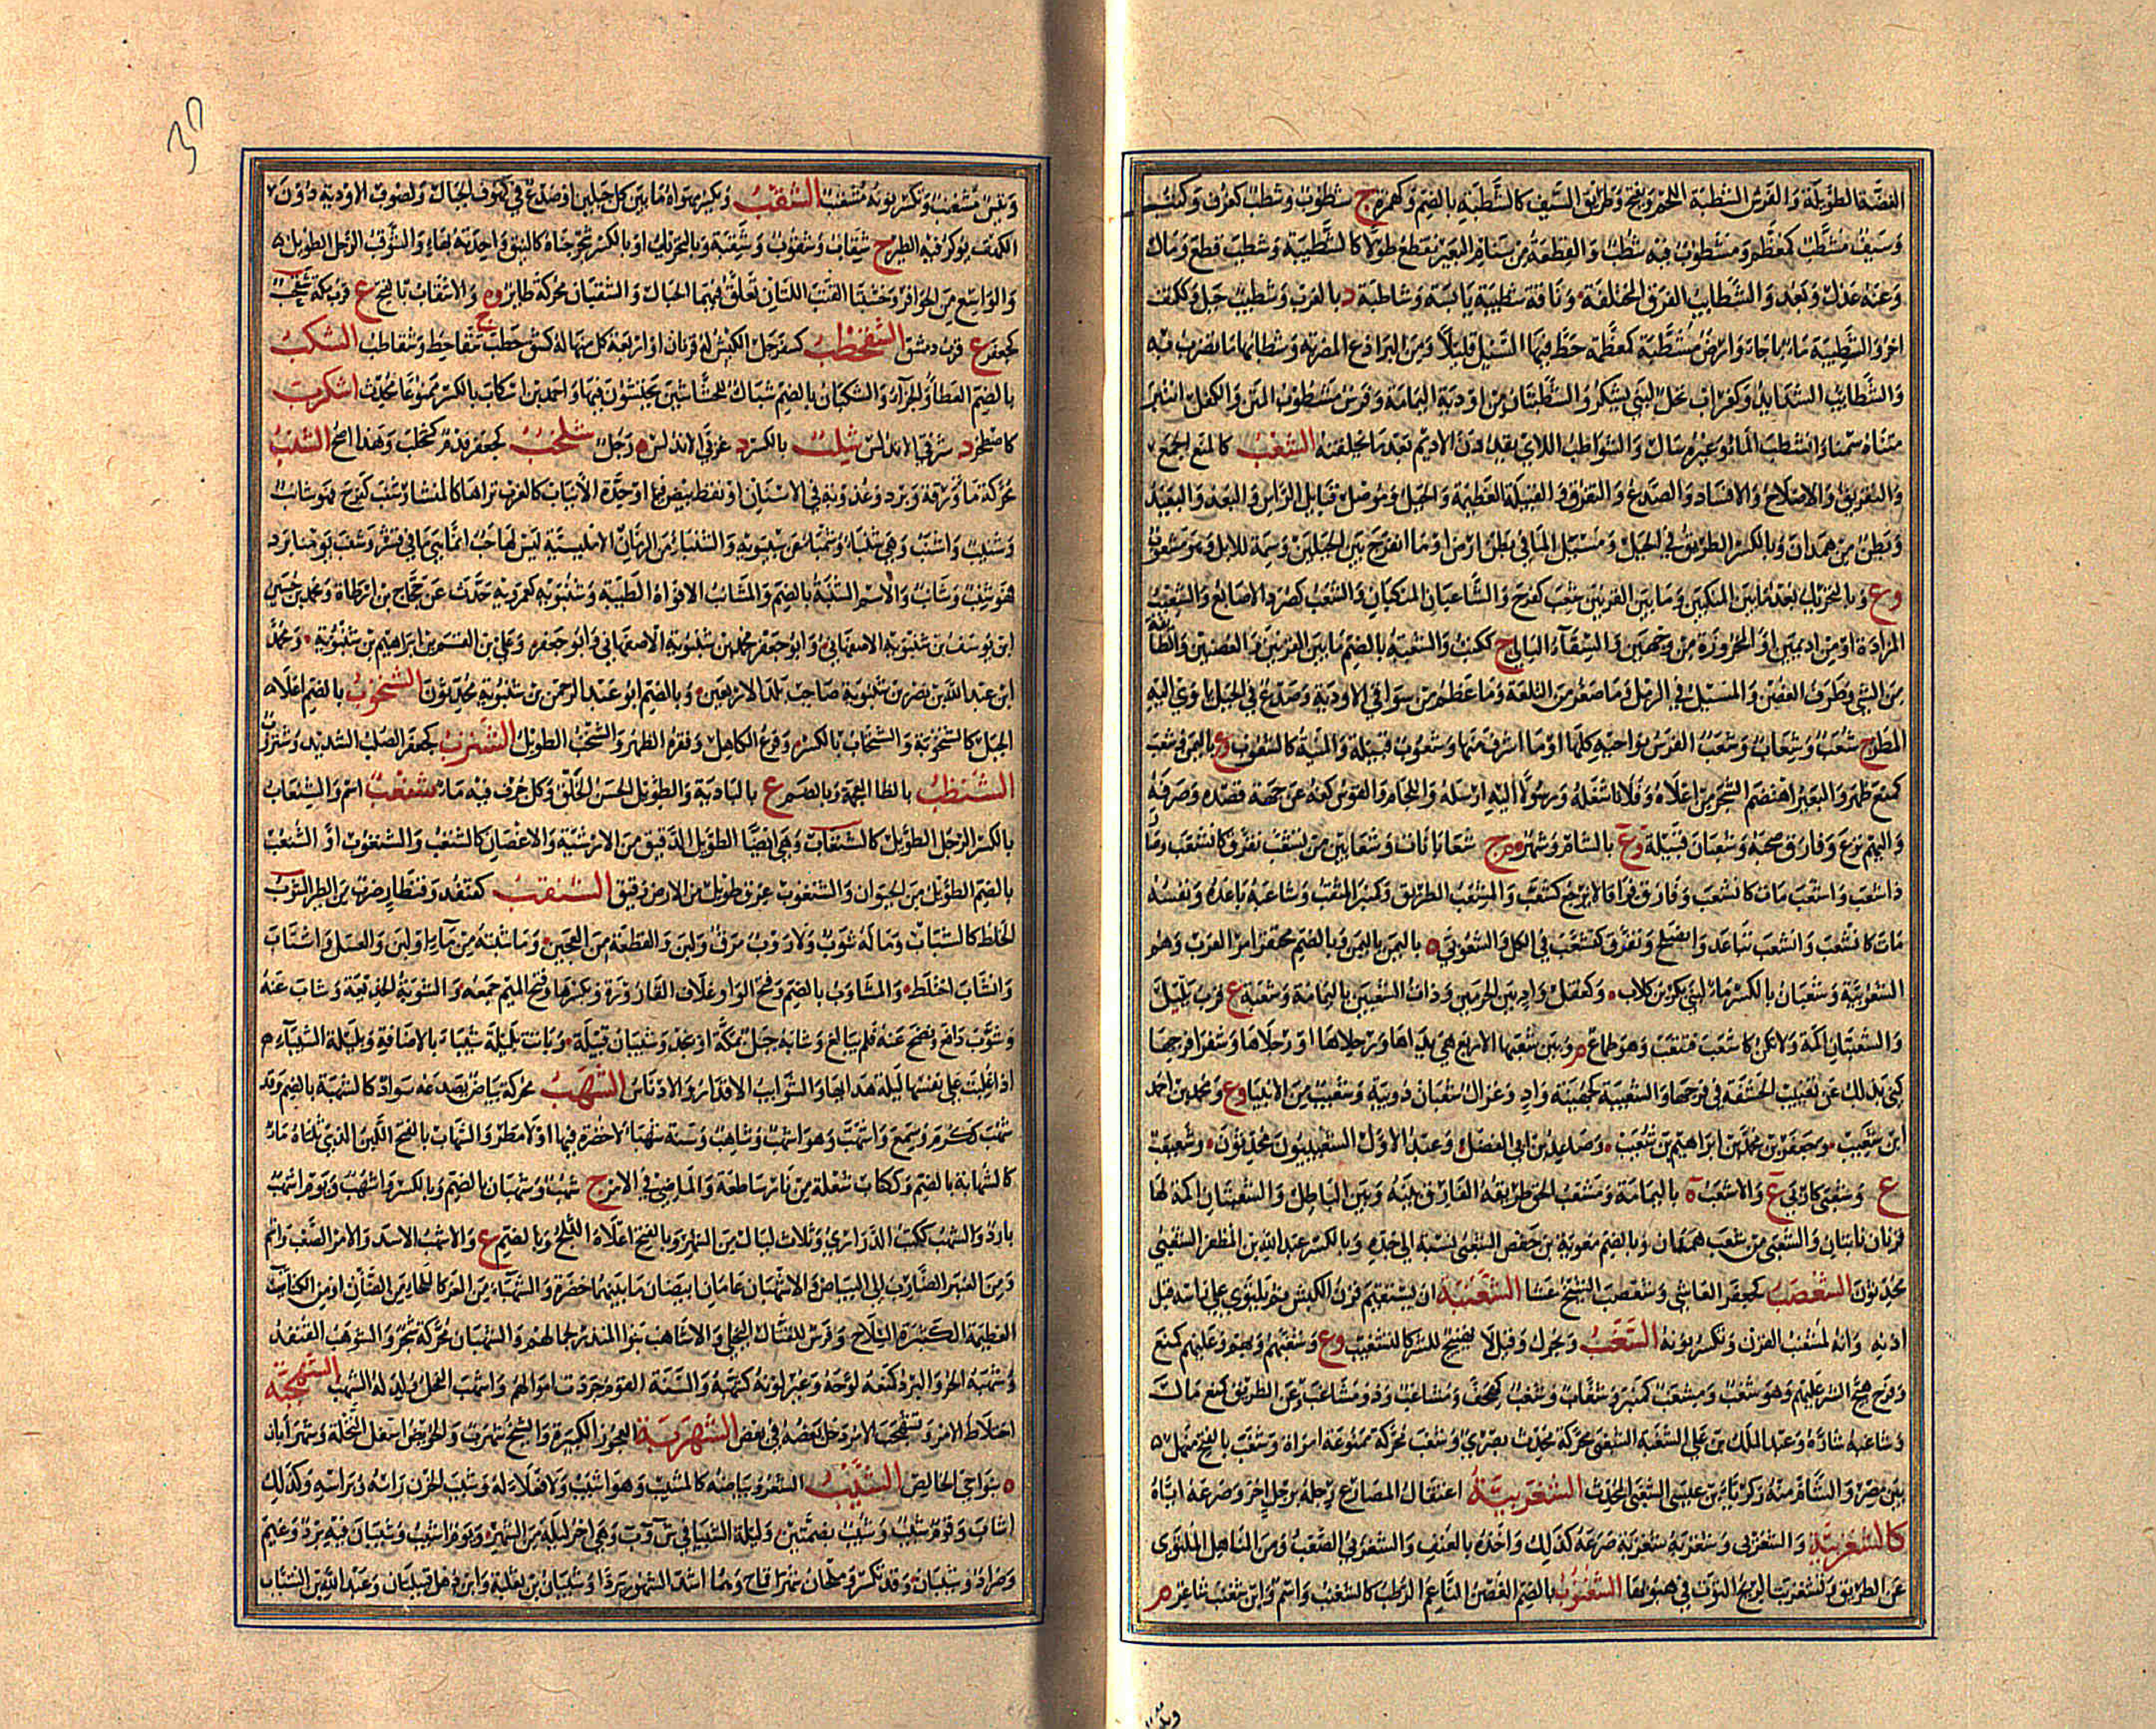 الغضة الطويلة والفرس السبطة اللحم ويفتح وطريق السيف كالشطبة بالضم وكهمزة ج شطوب وشطب كغرف وكتب
وسيف مشطب كمعظم ومشطوب فيه شطب والقطعة من سنام البعير تقطع طولا كالشطيبة وشطب قطع ومال
وعنه عدل وبعد والشطايب الفرق المختلفة وناقة شطيبة يابسة وشاطبة د بالغرب وشطيب جبل وككتف
اخر والشطيبة ماء باجا وارض مشطبة كمعظمة خط فيها السيل قليلا
والشطايب الشدايد وكغراب نخل لبني يشكر والشطبتان من اودية اليمامة وفرس مشطوب المتن والكفل انتبر
متناه سمنا وانشطب الماء وغيره سال والشواطب اللاي يقددن الاديم بعد ما يخلقنه الشعب كالمنع الجمع
والتفريق والاصلاح والافساد والصدع والتفرق والقبيلة العظيمة والجبل وموصل قبايل الراس والبعد والبعيد
وبطن من همدان وبالكسر الطريق في الجبل ومسيل الماء في بطن ارض او ما انفرج بين الجبلين وسمة للابل وهو مشعوب
وع وبالتحريك بعد ما بين المنكبين وما بين القرنين شعب كفرح والشاعبان المنكبان والشعب كصرد الاصابع والشعيب
المزادة او من اديمين او المخروزة من وجهين والسقاء البالي ج ككتب والشعبة بالضم ما بين القرنين والغصنين والطايفة
من الشيء وطرف الغصن والمسيل في الرمل وما صغر من التلعة وما عظم من سواقي الاودية وصدع في الجبل ياوي اليه
المطر ج شعب وشعاب وشعب الفرس نواحيه كلها او ما اشرف منها وشعوب قبيلة والمنية كالشعوب وع باليمن وشعب
كمنع ظهر والبعير اهتضم الشجر من اعلاه وفلانا شغله ورسولا اليه ارسله واللجام الفرس كفه عن جهة قصده وصرفه
واليهم نزع وفارق صحبه وشعبان قبيلة وع بالشام وشهر م ج شعبانات وشعابين من تشعب تفرق كانشعب وما
ذا شعب واشعب مات كانشعب وفارق فراقا لا يرجع كشعب والمشعب الطريق وكمنبر المثقب وشاعبه باعده ونفسه
مات كانشعب وانشعب تباعد وانصلح وتفرق كتشعب في الكل والشعوبي ة باليمن وبالضم محتقر امر العرب وهم
الشعوبية وشعبان بالكسر ماء لبني بكر بن كلاب وكقفل واد بين الحرمين وذات الشعبين باليمامة وشعبة ع قرب يليل
والشعبتان اكمة ولا تكن كاشعب فتتعب وهو طماع م وبين شعبها الاربع هي يداها ورجلاها او رجلاها وشفرا فرجها
كني بذلك عن تغييب الحشفة في فرجها والشعيبة كجهينة واد وغزال شعبان دويبة وشعيب من الانبياء وع ومحمد بن احمد
ابن شعيب وجعفر بن محمد بن ابراهيم بن شعيب وصاعد بن ابي الفضل وعبد الاول الشعيبيون محدثون وشعبعب
ع وشعبى كاربى ع والاشعب ة باليمامة ومشعب الحق طريقه الفارق بينه وبين الباطل والشعبتان اكمة لها
قرنان ناتئان والشعبي من شعب همدان وبالضم معوية بن حفص الشعبي نسبة الى جده وبالكسر عبد الله بن المظفر الشعبي
محدثون الشعصب كجعفر العاسي وشعصب الشيخ عسا الشعنبة ان يستقيم قرن الكبش ثم يلتوي على راسه قبل
اذنه وانه لمشعنب القرن وتكسر نونه الشغب ويحرك وقيل لا تهييج الشر كالتشغيب وع وشغبهم وبهم وعليهم كمنع
وفرح هيج الشر عليهم وهو شغب ومشغب كمنبر وشغاب وشغب كهجف ومشاغب وذو مشاغب وعن الطريق كمنع مال
وشاغبه شاره وعبد الملك بن علي الشغبي محركة محدث بصري وشغب محركة ممنوعة امراة وشغب بالفتح منهل
بين مصر والشام منه زكريا بن عيسى الشغبي المحدث الشغزبية اعتقال المصارع رجله برجل اخر وصرعه اياه
كالشغزبية والشغزبي وشغزبه شغزبة صرعه كذلك واخذه بالعنف والشغزبي الصعب ومن المناهل الملتوي
عن الطريق وتشغزبت الريح التوت في هبوبها الشغنوب بالضم الغصن الناعم الرطب كالشغنب واسم وابن شغنب شاعر م
وتيس مشغنب وتكسر نونه مشعنب الشقب ويكسر مهواة ما بين كل جبلين او صدع في كهوف الجبال ولصوب الاودية دون
الكهف يوكر فيه الطير ج شقاب وشقوب وشقبة وبالتحريك او بالكسر شجر جناه كالنبق واحدته بهاء والشوقب الرجل الطويل
والواسع من الحوافر وخشبتا القتب اللتان تعلق بهما الحبال والشقبان محركة طاير وة والاشقاب بالفتح ع قرب مكة شقب
كجعفر ع قرب دمشق الشقحطب كسفرجل الكبش له قرنان او اربعة كل منها له كشق حطب ج شقاحط وشقاطب الشكب
بالضم العطا والجزاء والشكبان بالضم شباك للحشاشين يحتشون فيها واحمد بن اشكاب بالكسر ممنوعا محدث اشكرب
كاصطخر د شرقي الاندلس شلب بالكسر د غربي الاندلس رجل شلخب كجعفر فدم كخلب وهذا اصح الشنب
محركة ماء ورقة وبرد وعذوبة في الاسنان او نقط بيض فيها او حدة الانياب كالغرب تراها كالمنشار شنب كفرح فهو شانب
وشنيب واشنب وهي شنباء وشمباء عن سيبويه والشنباء من الرمان الامليسية ليس لها حب انما هي ماء في قشر وشنب يومنا برد
فهو شنب وشانب والاسم الشنبة بالضم والمشانب الافواه الطيبة وشنبويه كعمرويه حدث عن حجاج بن ارطاة ومحمد بن حسين
ابن يوسف بن شنبويه الاصفهاني وابو جعفر محمد بن شنبويه الاصفهاني وابو جعفر وعلي بن القسم بن ابراهيم بن شنبويه ومحمد
ابن عبد الله بن نصر بن شنبويه صاحب تلك الاربعين وبالضم ابو عبد الرحمن بن شنبويه محدثون الشنخوب بالضم اعلا
الجبل كالشنخوبة والشنخاب بالكسر وفرع الكاهل وفقرة الظهر والشنخب الطويل الشنزب كجعفر الصلب الشديد وشنزوب
الشنظب بالظا المعجمة وبالضم ع بالبادية والطويل الحسن الخلق وكل جرف فيه ماء شنعب اسم والشنعاب
بالكسر الرجل الطويل كالشنغاب وهي ايضا الطويل الدقيق من الارشية والاغصان كالشنغب والشنغوب او الشنغب
بالضم الطويل من الحيوان والشنغوب عرق طويل من الارض دقيق الشنقب كقنفذ وقنطار ضرب من الطير الشوب
الخلط كالشياب وما له شوب ولا روب مرق ولبن والقطعة من العجين وما شبته من ماء او لبن والعسل واشتاب
وانشاب اختلط والمشاوب بالضم وفتح الواو غلاف القارورة وبكسرها وفتح الميم جمعه والشوبة الخديعة وشاب عنه
وشوب دافع ونضح عنه فلم يبالغ وشابة جبل بمكة او بنجد وشيبان قبيلة وباتت بليلة شيباء بالاضافة وبليلة الشيباء
اذا غلبت على نفسها ليلة هدائها والشوايب الاقذار والادناس الشهب محركة بياض يصدعه سواد كالشهبة بالضم وقد
شهب ككرم وسمع واشهب وهو اشهب وشاهب وسنة شهباء لا خضرة فيها او لا مطر والشهاب بالفتح اللبن الذي ثلثاه ماء
كالشهابة بالضم وككتاب شعلة من نار ساطعة والماضي في الامر ج شهب وشهبان بالضم وبالكسر واشهب ويوم اشهب
بارد والشهب ككتب الدراري وثلاث ليال من الشهر وبالفتح اعلاه الثلج وبالضم ع والاشهب الاسد والامر الصعب واسم
ومن العنبر الضارب الى البياض والاشهبان عامان ابيضان ما بينهما خضرة والشهباء من المعز كالملحاء من الضان ومن الكتائب
العظيمة الكثيرة السلاح وفرس للقتال البجلي والاشاهب بنو المنذر لجمالهم والشهبان محركة شجر والشوهب القنفذ
وشهبه الحر والبرد كمنعه لوحه وغير لونه كشهبه والسنة القوم جردت اموالهم واشهب الفحل ولد له الشهب الشهجبة
اختلاط الامر وتشهجب الامر دخل بعضه في بعض الشهربة العجوز الكبيرة والشيخ شهرب والحويض اسفل النخلة وشهرابان
ة بنواحي الخالص الشيب الشعر وبياضه كالمشيب وهو اشيب ولا فعلاء له وشيب الحزن راسه وبراسه وكذلك
اشاب وقوم شيب وشيب بضمتين وليلة الشيباء في ش و ب وهي اخر ليلة من الشهر ويوم اشيب وشيبان فيه برد وغيم
وصراد وشيبان وقد تكسر وملحان شهرا قماح وهما اشد الشهور بردا وشيبان بن ثعلبة وابن ذهل قبيلتان وعبد الله بن الشياب